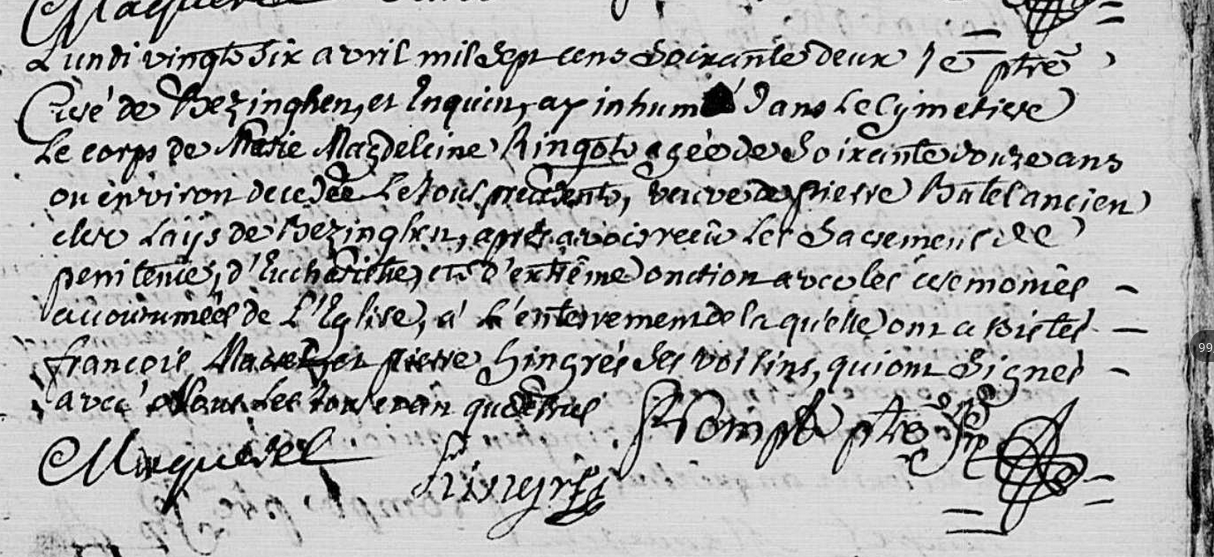 Maquerel
Lundi vingt Six avril mil Sept cens Soixante deux Je ptre
Curé de Bezinghen, et Enquin, ay inhumé Dans Le Cymetiere
Le corps de Marie Magdeleine Ringot agée de Soixante douze ans
ou environ decedée Le Jour precedent, veuve de pierre Batel ancien
clerc Laÿs de Bezinghen, aprés avoir recû Les Sacremens de
penitence, d'Eucharistie, et d'extrême onction avec les ceremonies
accoutumées de L'Eglise, à L'enterrement de laquelle ont assistés
françois et pierre hingrés Ses voisins, qui ont Signés
avec Nous Les Jour et an que dessus
Maquerel hingrés ptre